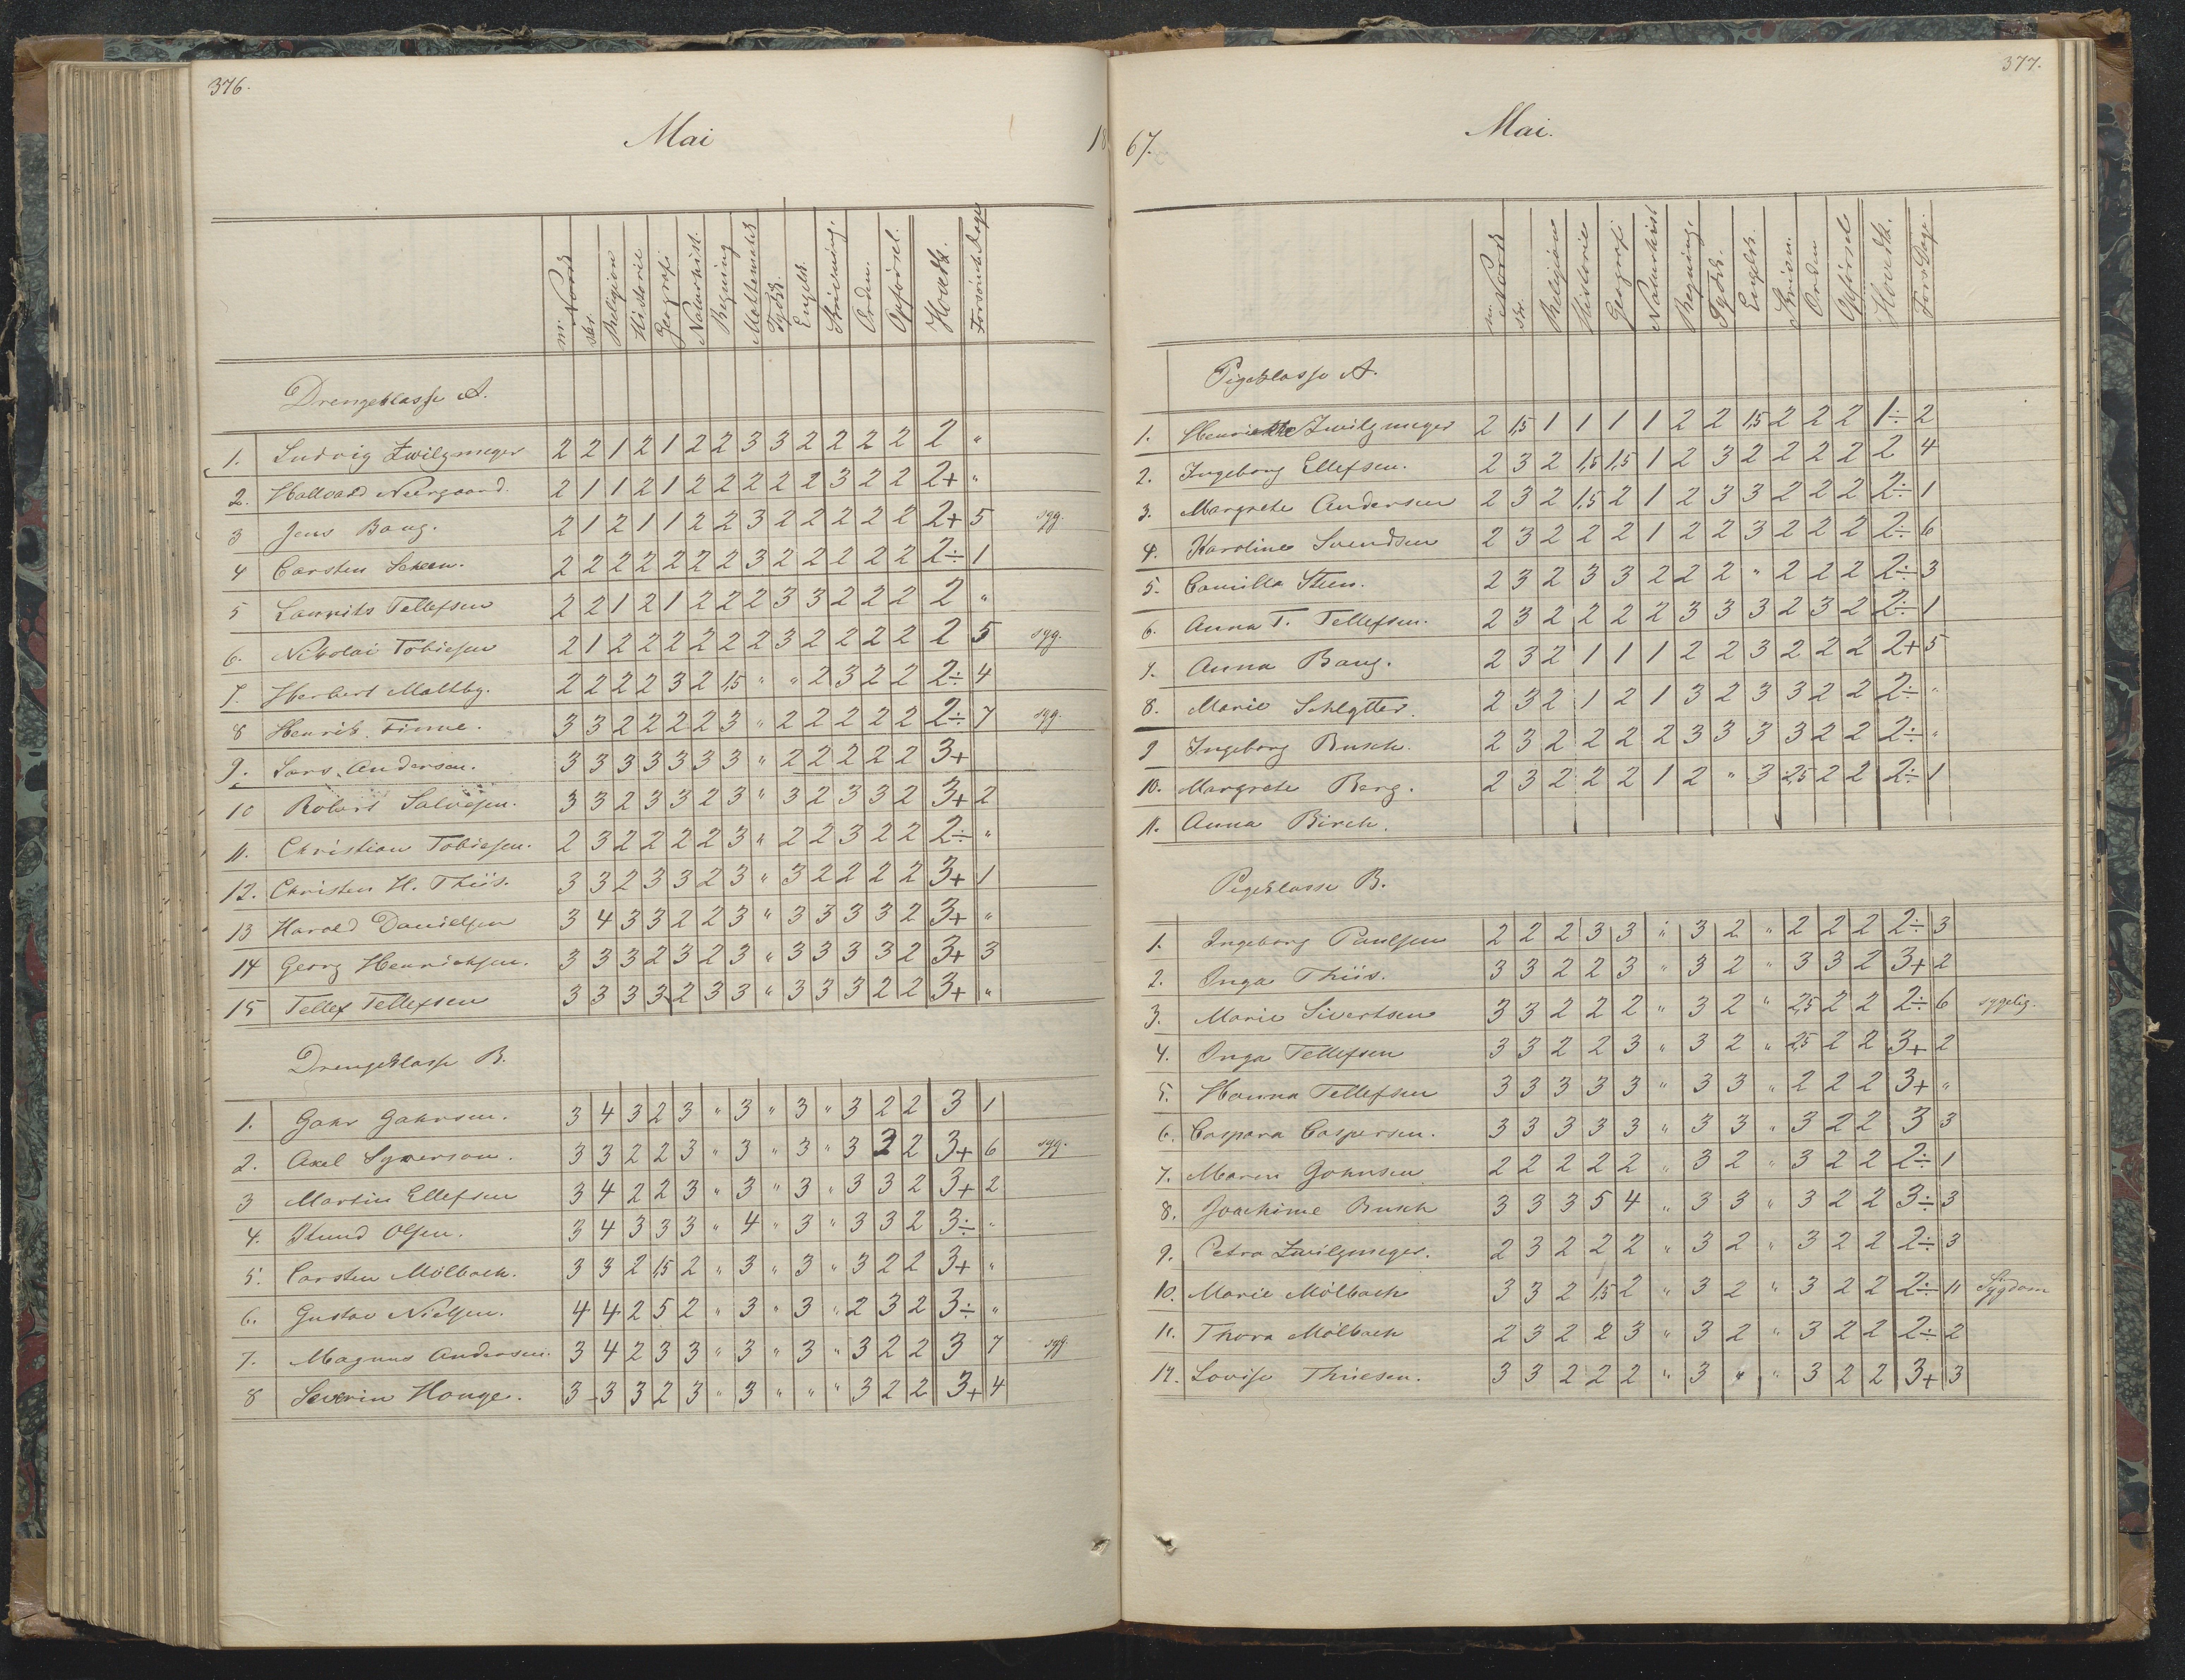 376.
Mai
18
m. Norsk skr. Religion Historie Geografi Naturhist. Regning Mathematik Tydsk. Engelsk Skrivning. Orden. Opførsel. Hovedk. Forsømte Dage
Drengeklasse A.
1. Ludvig Zwilgmeyer 2 2 1 2 1 2 2 3 3 2 2 2 2 2 "
2. Hallvard Neergaard. 2 1 1 2 1 2 2 2 2 2 3 2 2 2+ "
3 Jens Bang. 2 1 2 1 1 2 2 3 2 2 2 2 2 2+ 5 syg.
4 Carsten Scheen. 2 2 2 2 2 2 2 3 2 2 2 2 2 2÷ 1
5 Laurits Tellefsen 2 2 1 2 1 2 2 2 3 3 2 2 2 2 "
6. Nikolai Tobiesen 2 1 2 2 2 2 2 2 3 2 2 2 2 2 5 syg.
7. Herbert Maltby. 2 2 2 2 3 2 1,5 " " 2 3 2 2 2÷ 4
8 Henrik Finne. 3 3 2 2 2 2 3 " 2 2 2 2 2 2÷ 7 syg.
9. Lars Andersen. 3 3 3 3 3 3 3 " 2 2 2 2 2 3+
10 Robert Salvesen. 3 3 2 3 3 2 3 " 3 2 3 3 2 3+ 2
11. Christian Tobiesen. 2 3 2 2 2 2 3 " 2 2 3 2 2 2÷ "
12. Christen H. Thiis. 3 3 2 3 3 2 3 " 3 2 2 2 2 3+ 1
13 Harald Danielsen 3 4 3 3 2 2 3 " 3 3 3 3 2 3+ "
14 Georg Henrichsen. 3 3 3 2 3 2 3 " 3 3 3 3 2 3+ 3
15 Tellef Tellefsen 3 3 3 3 2 3 3 " 3 3 3 2 2 3+ "
Drengeklasse B.
1. Gahr Gahrsen. 3 4 3 2 3 " 3 " 3 " 3 2 2 3 1
2. Axel Syverson. 3 3 2 2 3 " 3 " 3 " 3 2 2 3+ 6 syg.
3 Martin Ellefsen 3 4 2 2 3 " 3 " 3 " 3 3 2 3+ 2
4. Knud Olsen. 3 4 3 3 3 " 4 " 3 " 3 3 2 3÷ "
5. Carsten Mölbach. 3 3 2 1,5 2 " 3 " 3 " 3 2 2 3+ "
6. Gustav Nielsen. 4 4 2 5 2 " 3 " 3 " 2 3 2 3÷ "
7. Magnus Andersen. 3 4 2 3 3 " 3 " 3 " 3 2 2 3 7 syg.
8 Severin Houge. 3 3 3 2 3 " 3 " " " 3 2 2 3+ 4
377.
Mai.
67.
m. Norsk skr. Religion Historie Geografi Naturhist Regning. Tydsk. Engelsk. Skrivn. Orden Opførsel Hovedk. Fors. Dage
Pigeklasse A.
1. Henriette Zwilgmeyer 2 1,5 1 1 1 1 2 2 1,5 2 2 2 1÷ 2
2. Ingeborg Ellefsen. 2 3 2 1,5 1,5 1 2 3 2 2 2 2 2 4
3. Margrete Andersen 2 3 2 1,5 2 1 2 3 3 2 2 2 2÷ 1
4. Karoline Svendsen 2 3 2 2 2 1 2 2 3 2 2 2 2÷ 6
5. Camilla Steen. 2 3 2 3 3 2 2 2 " 2 2 2 2÷ 3
6. Anna T. Tellefsen. 2 3 2 2 2 2 3 3 3 2 3 2 2÷ 1
7. Anna Bang. 2 3 2 1 1 1 2 2 3 2 2 2 2+ 5
8. Marie Schlytter. 2 3 2 1 2 1 3 2 3 3 2 2 2÷ "
9 Ingeborg Busch. 2 3 2 2 2 2 3 3 3 3 2 2 2÷ "
10. Margrete Berg. 2 3 2 2 2 1 2 " 3 2,5 2 2 2÷ 1
11. Anna Birch.
Pigeklasse B.
1. Ingeborg Paulsen 2 2 2 3 3 " 3 2 " 2 2 2 2÷ 3
2. Inga Thiis. 3 3 2 2 3 " 3 2 " 3 3 2 3+ 2
3. Marie Sivertsen 3 3 2 2 2 " 3 2 " 2,5 2 2 2÷ 6 sygelig.
4. Inga Tellefsen 3 3 2 2 3 " 3 2 " 2,5 2 2 3+ 2
5. Hanna Tellefsen 3 3 3 3 3 " 3 3 " 2 2 2 3+ "
6. Caspara Caspersen. 3 3 3 3 3 " 3 3 " 3 2 2 3 3
7. Maren Gohnsen 2 2 2 2 2 " 3 2 " 3 2 2 2÷ 1
8. Joachime Busch 3 3 3 5 4 " 3 3 " 3 2 2 3÷ 3
9. Petra Zwilgmeyer. 2 3 2 2 2 " 3 2 " 3 2 2 2÷ 3
10. Marie Mölbach 3 3 2 1,5 2 " 3 2 " 3 2 2 2÷ 11 Sygdom
11. Thora Mölbach 2 3 2 2 3 " 3 2 " 3 2 2 2÷ 2
12. Lovise Thiesen. 3 3 2 2 2 " 3 " " 3 2 2 3+ 3